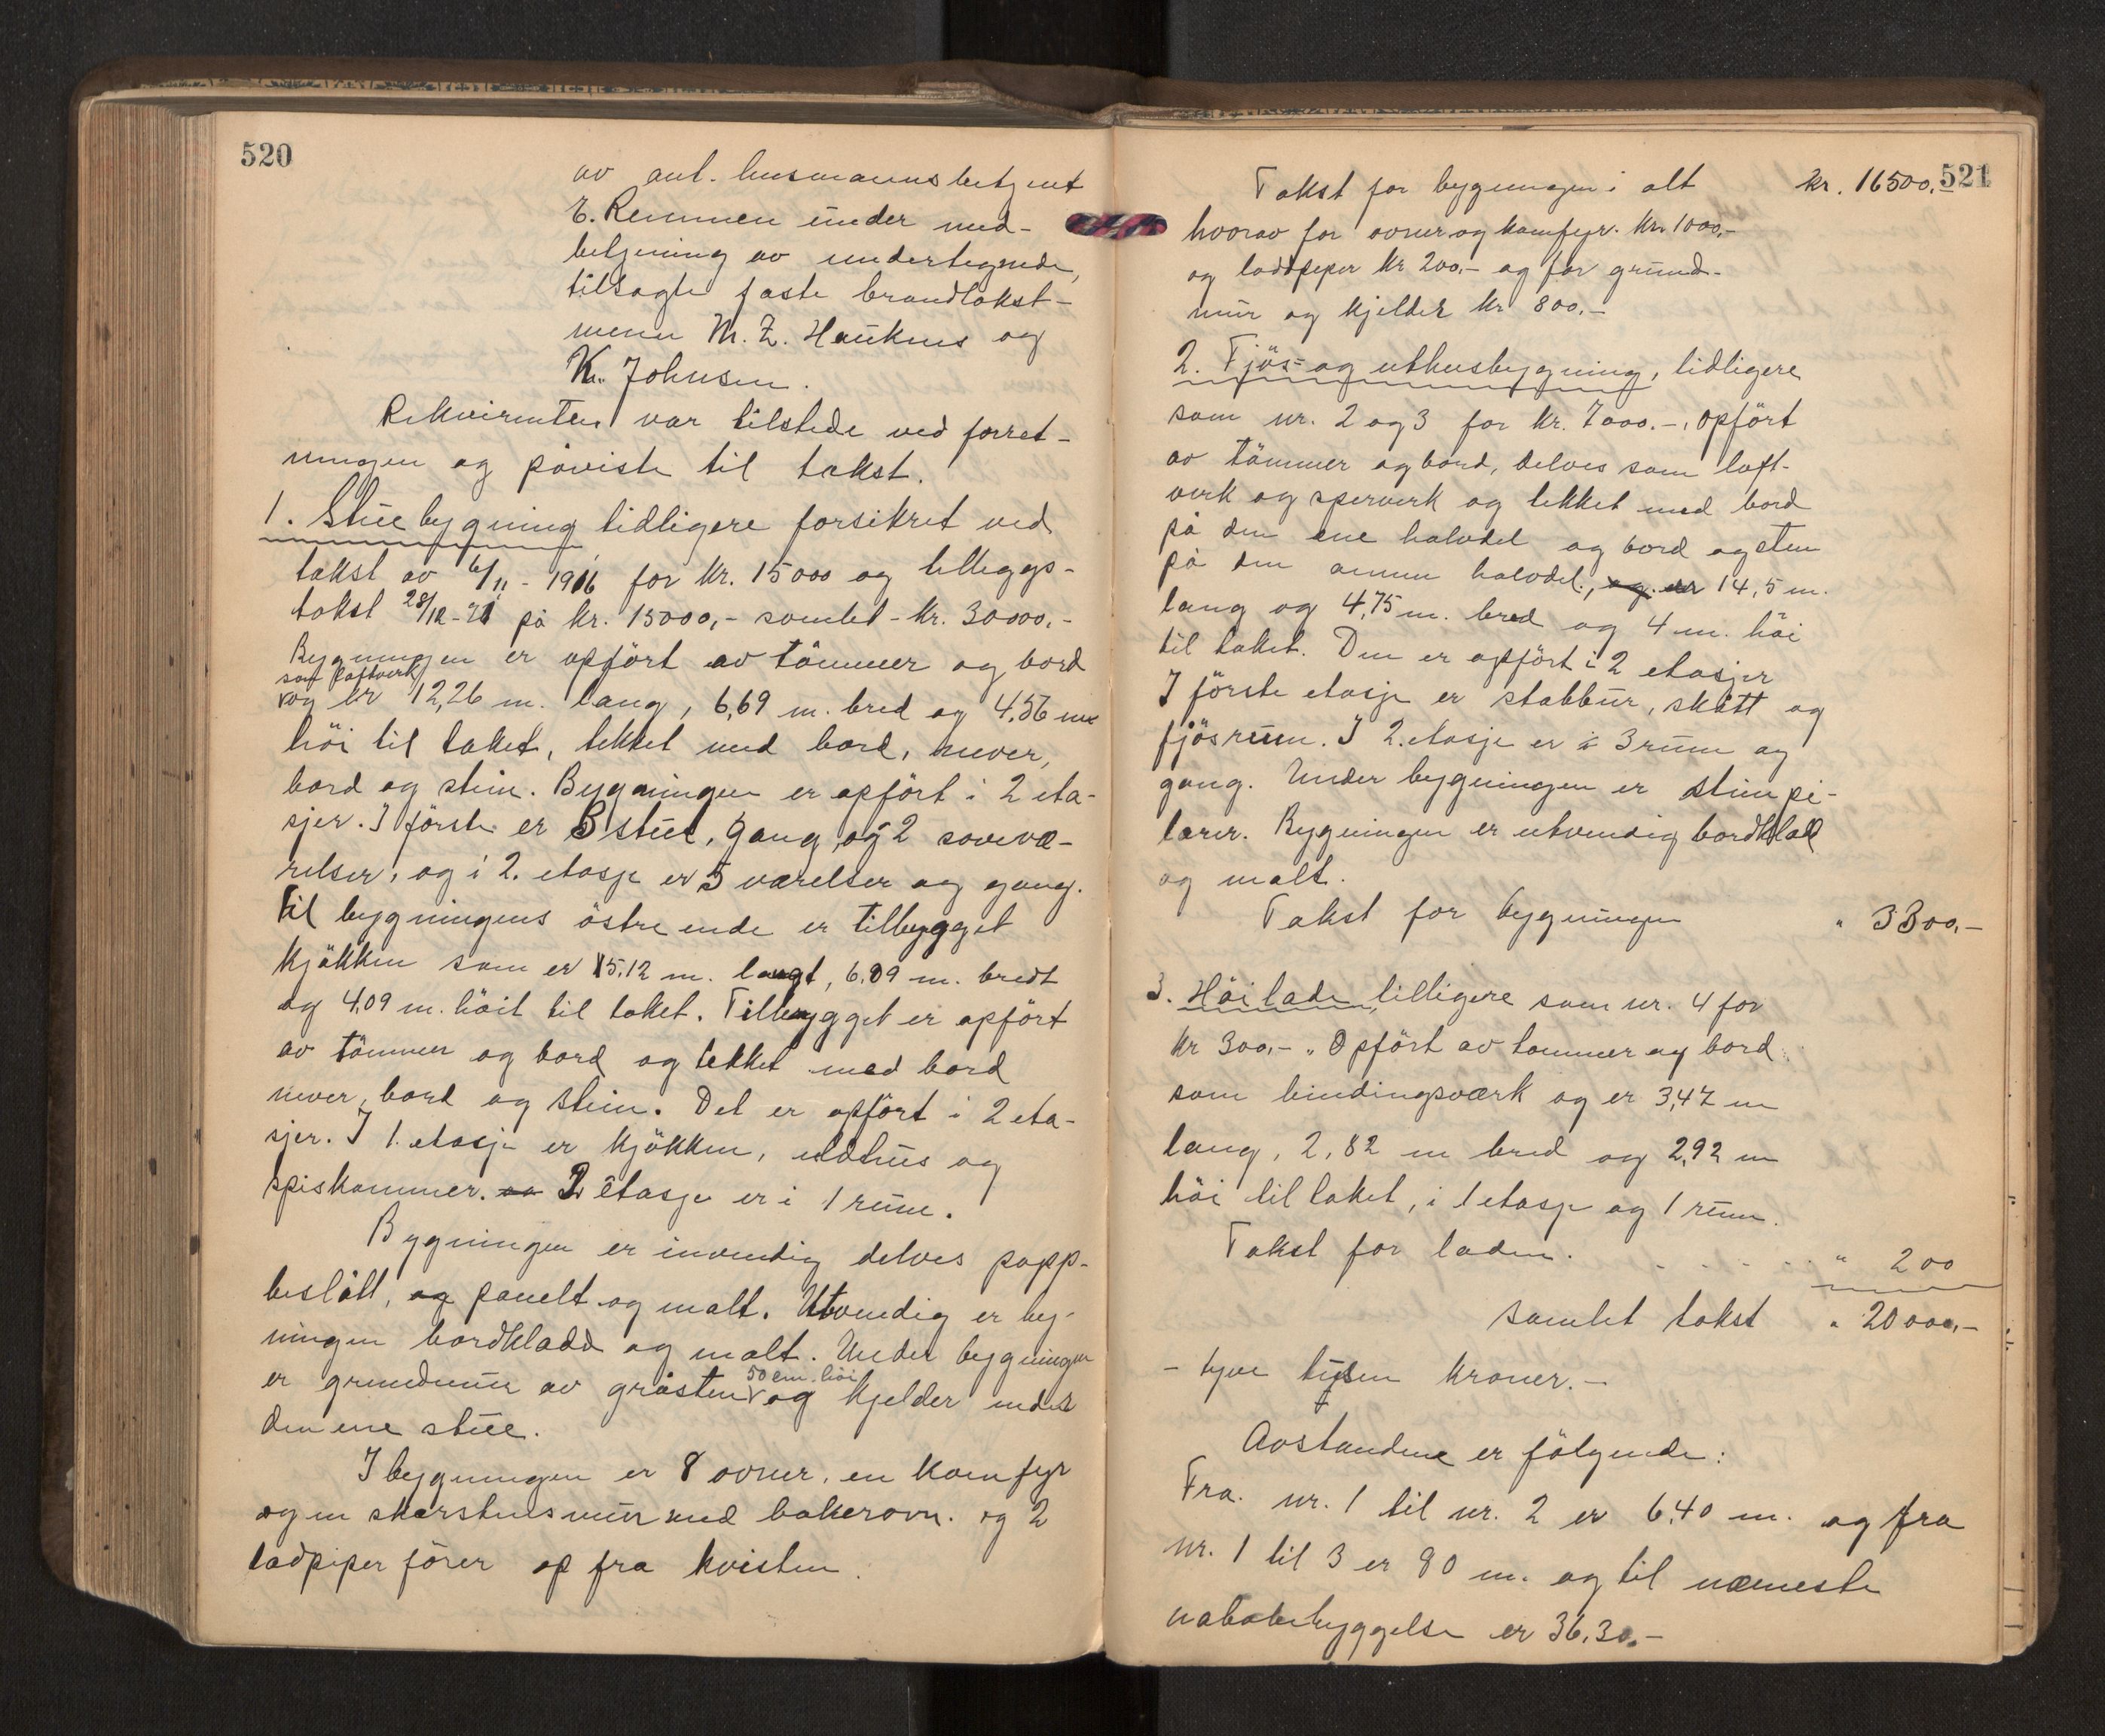 520
av aut. lensmannsbetjent
E. Remmen under med-
betjening av undertegnede,
tilsagte faste brandtakst-
menn M. Z. Hauknes og
K. Johnsen.
Rekvirenten var tilstede ved forret-
ningen og påviste til takst.
1. Stuebygning tidligere forsikret ved
takst av 6/11 - 1916 for kr. 15000 og tilleggs-
takst 28/12-21 på kr. 15000,- samlet - kr. 30000.-
Bygningen er opført av tömmer og bord
som laftverk
og er 12,26 m. lang, 6,69 m. bred og 4,56 m
höi til taket, tekket med bord, never,
bord og stein. Bygningen er opfört i 2 eta-
sjer. I förste er 3 stue, gang og 2 sovevæ-
relser, og i 2. etasje er 5 værelser og gang.
Til bygningens östre ende er tilbygget
kjökken som er 5.12 m. langt, 6.09 m. bredt
og 4.09 m. höit til taket. Tilbygget er opfört
av tömmer og bord og tekket med bord
never, bord og stein. Det er opfört i 2 eta-
sjer. I 1. etasje er kjökken, ildhus og
spiskammer. 2 etasje er i 1 rum.
Bygningen er invendig delves papp-
beslått, og panelt og malt. Utvendig er byg-
ningen bordkladd og malt. Under bygningen
50 cm. höi
er grundmur av gråsten og kjelder under
den ene stue.
I bygningen er 8 ovner, en komfyr
og en skorstensmur med bakerovn. og 2
ladpiper förer op fra kvisten.
521
Takst for bygningen i alt kr. 16500.-
hvorav for ovner og komfyr. kr. 1000,-
og laddpiper kr 200,- og for grund-
mur og kjelder kr 800.-
2. Fjös- og uthusbygning, tidligere
som nr. 2 og 3 for kr. 7000.-, opfört
av tömmer og bord, delves som laft-
verk og sperverk og tekket med bord
på den ene halvdel og bord og sten
på den annen halvdel, og er 14,5 m.
lang og 4,75 m. bred og 4 m. höi
til taket. Den er opfört i 2 etasjer
I förste etasje er stabbur, skått og
fjösrum. I 2. etasje er i 3 rum og
gang. Under bygningen er steinpi-
larer. Bygningen er utvendig bordkladd
og malt.
Takst for bygningen " 3300,-
3. Höilade, tidligere som nr. 4 for
kr 300,-. Opfört av tommer og bord
som bindingsværk og er 3,47 m
lang, 2,82 m bred og 2,92 m
höi til taket, i 1 etasje og 1 rum.
Takst for laden. " 200
Samlet takst " 20000,-
- tyve tusen kroner.-
Avstandene er fölgende:
Fra nr. 1 til nr. 2 er 6,40 m. og fra
nr. 1 til 3 er 90 m. og til nærmeste
nabobebyggelse er 36,30.-